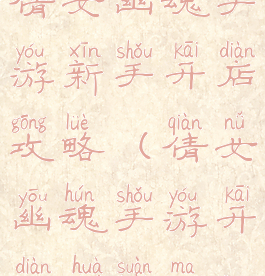 倩女幽魂手
yóu xīn shǒu kāi diàn
游新手开店
gōng lüè qiàn nǚ
攻略（倩女
yōu hún shǒu yóu kāi
幽魂手游开
diàn huà suàn ma